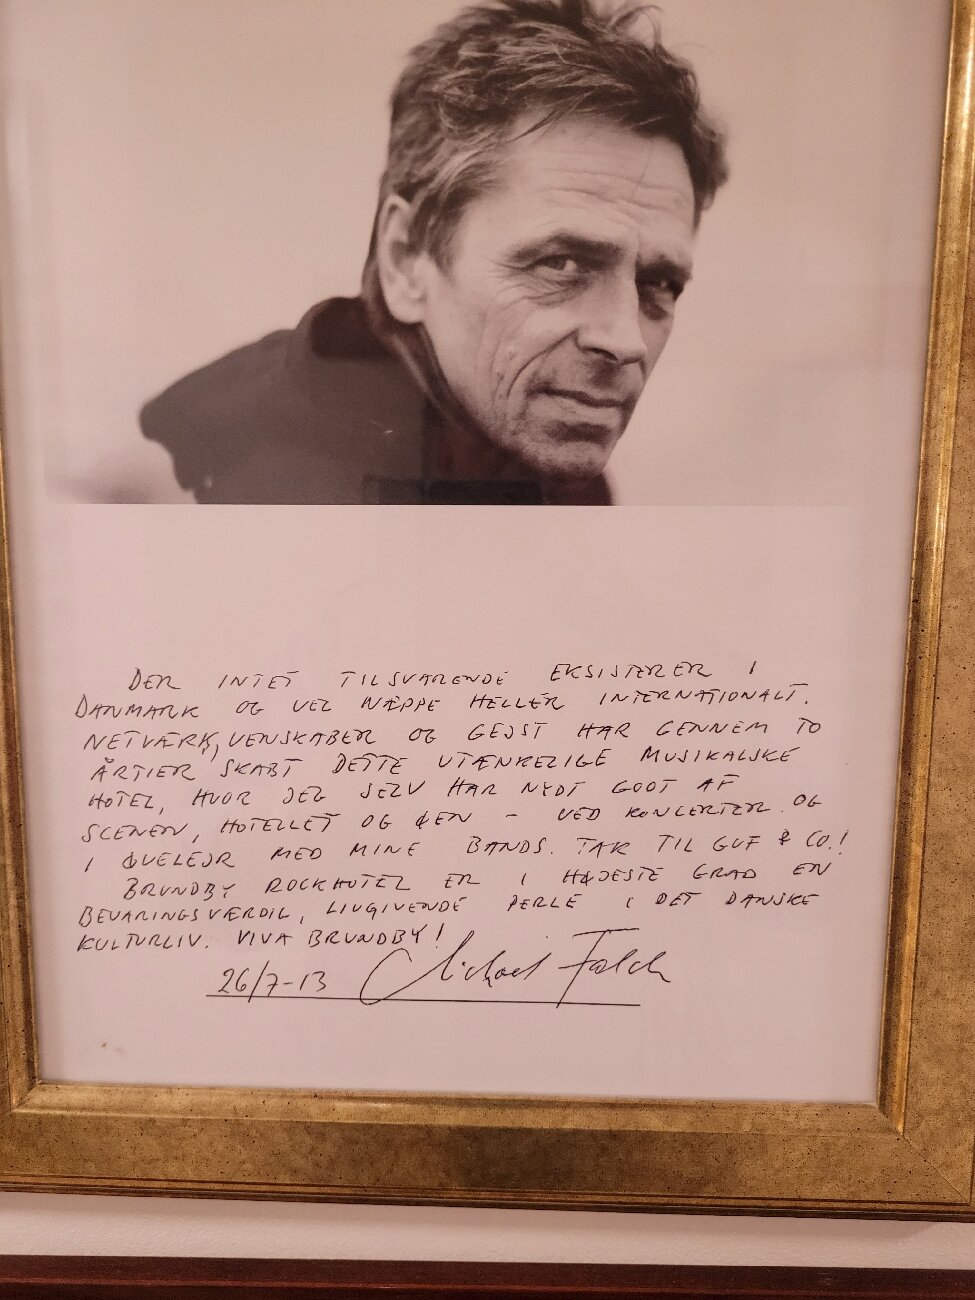 DER INTET TILSVARENDE EKSISTERER I
DANMARK OG VEL NÆPPE HELLER INTERNATIONALT.
NETVÆRK, VENSKABER OG GEJST HAR GENNEM TO
ÅRTIER SKABT DETTE UTÆNKELIGE MUSIKALSKE
HOTEL, HVOR JEG SELV HAR NYDT GODT AF
SCENEN, HOTELLET OG ØEN - VED KONCERTER OG
I ØVELEJR MED MINE BANDS. TAK TIL GUF & CO.!
BRUNDBY ROCKHOTEL ER I HØJESTE GRAD EN
BEVARINGSVÆRDIG, LIVGIVENDE PERLE I DET DANSKE
KULTURLIV. VIVA BRUNDBY!
26/7-13 Michael Falch